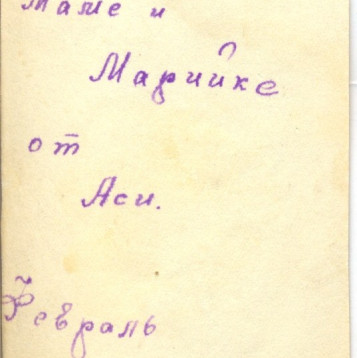 Маме и
Марийке
от
Аси.
Февраль